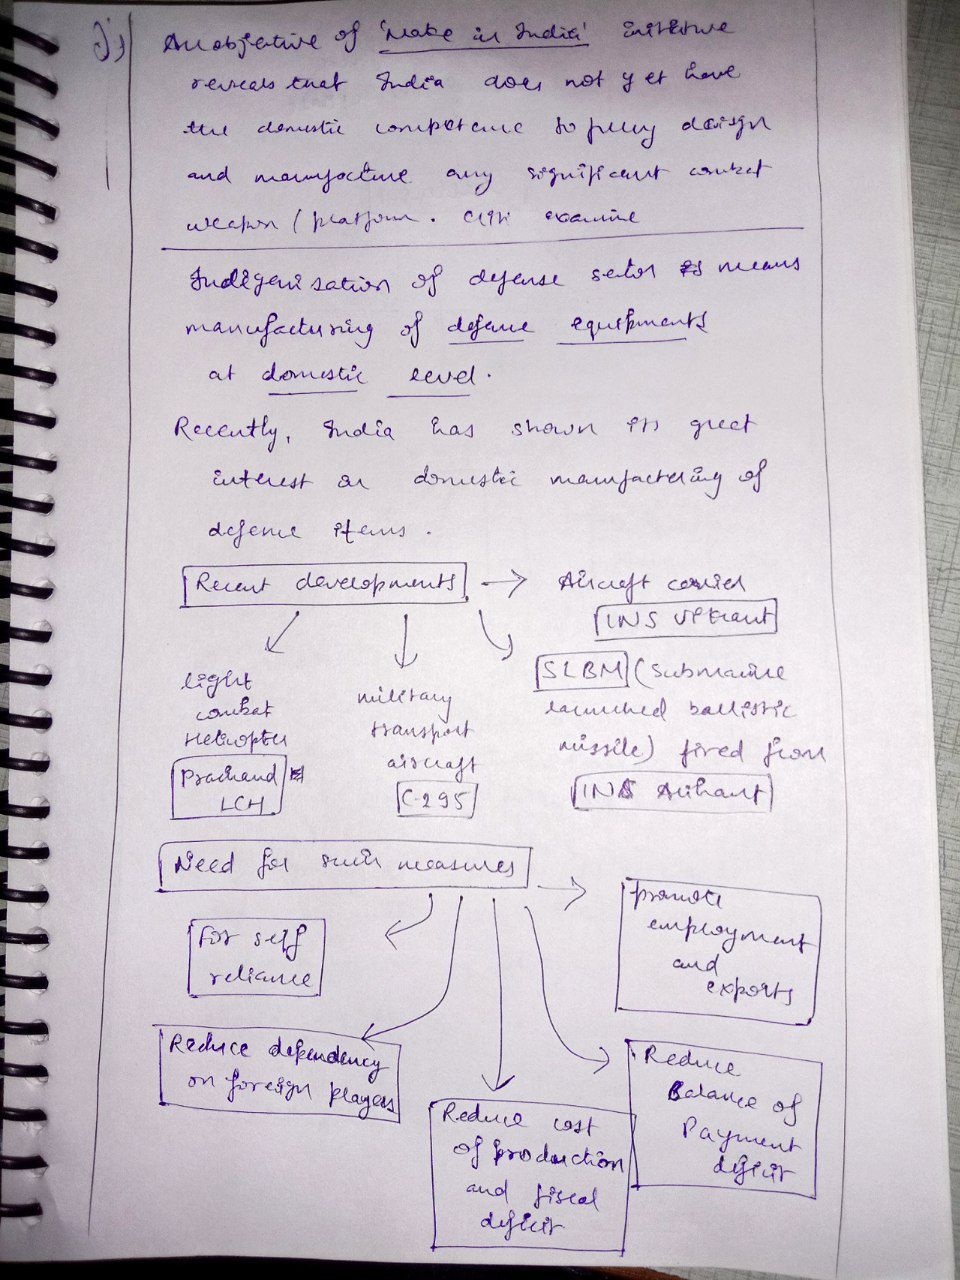 An objective of 'Make in India' initiative
reveals that India does not yet have
the domestic competence to fully design
and manufacture any significant combat
weapon / platform. Criti examine
Indigenisation of defense sector means
manufacturing of defence equipments
at domestic level.
Recently, India has shown its great
interest on domestic manufactering of
defence items.
Recent developments → Aircraft carrier
INS Vikrant
light
combat
Helicopter
Prachand
LCH
military
transport
aircraft
C-295
SLBM (submarine
launched ballistic
missile) fired from
INS Arihant
Need for such measures
For self
reliance
Reduce dependency
on foreign players
Reduce cost
of production
and fiscal
deficit
Reduce
Balance of
Payment
deficit
promote
employment
and
exports